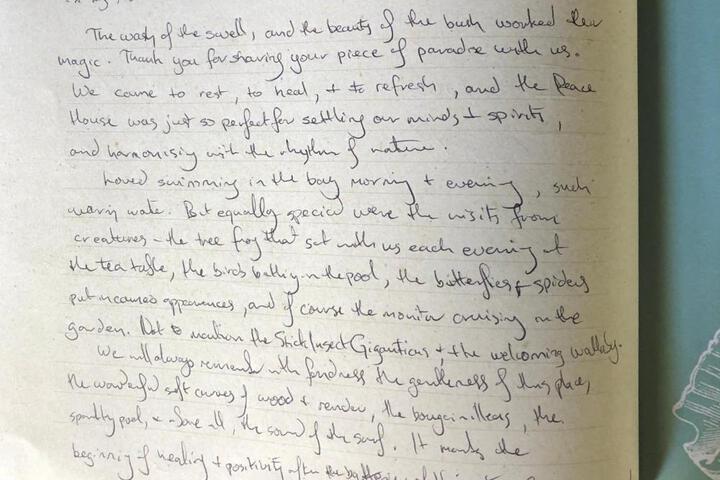 The wash of the swell, and the beauty of the bush worked their
magic. Thank you for sharing your piece of paradise with us.
We came to rest, to heal, + to refresh, and the Peace
House was just so perfect for settling our minds + spirits,
and harmonising with the rhythm of nature.
Loved swimming in the bay morning + evening, such
warm water. But equally special were the visits from
creatures - the tree frog that sat with us each evening at
the tea table, the birds bathing in the pool, the butterflies + spiders
put in cameo appearances, and of course the monitor cruising in the
garden. Not to mention the Stick Insect Giganticus + the welcoming wallaby.
We will always remember with fondness the gentleness of this place,
the wonderful soft curves of wood + render, the bougainvilleas, the
sparkling pool, + above all, the sound of the surf. It marks the
beginning of healing + positivity after the